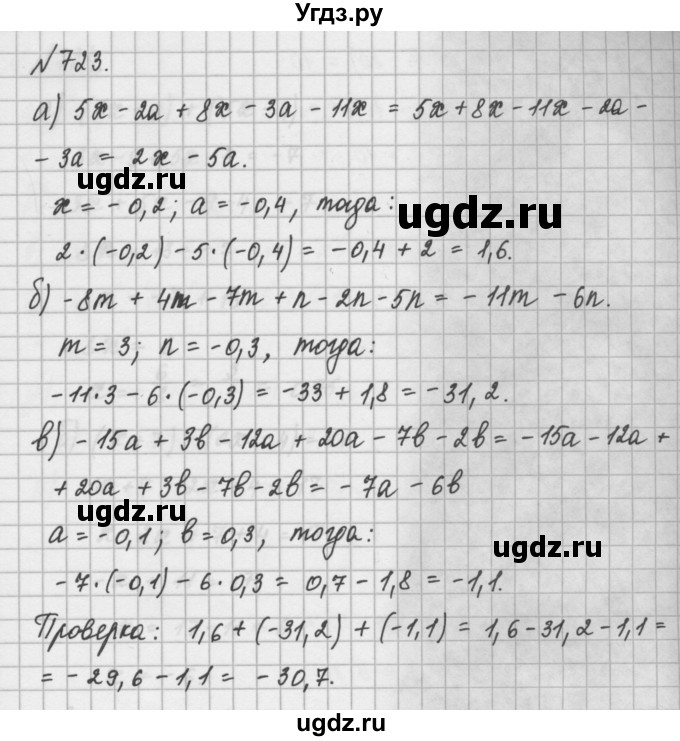 Угдз.ру
№723.
а) 5x - 2a + 8x - 3a - 11x = 5x + 8x - 11x - 2a -
- 3a = 2x - 5a.
ugdz.ru
x = -0,2; a = -0,4, тогда:
ugdz.ru
2·(-0,2) - 5·(-0,4) = -0,4 + 2 = 1,6.
б) -8m + 4m - 7m + n - 2n - 5n = -11m - 6n.
m = 3; n = -0,3, тогда:
-11·3 - 6·(-0,3) = -33 + 1,8 = -31,2.
в) -15a + 3b - 12a + 20a - 7b - 2b = -15a - 12a +
+ 20a + 3b - 7b - 2b = -7a - 6b
ugdz.ru
a = -0,1; b = 0,3, тогда:
ugdz.ru
-7·(-0,1) - 6·0,3 = 0,7 - 1,8 = -1,1.
Проверка: 1,6 + (-31,2) + (-1,1) = 1,6 - 31,2 - 1,1 =
= -29,6 - 1,1 = -30,7.
ugdz.ru